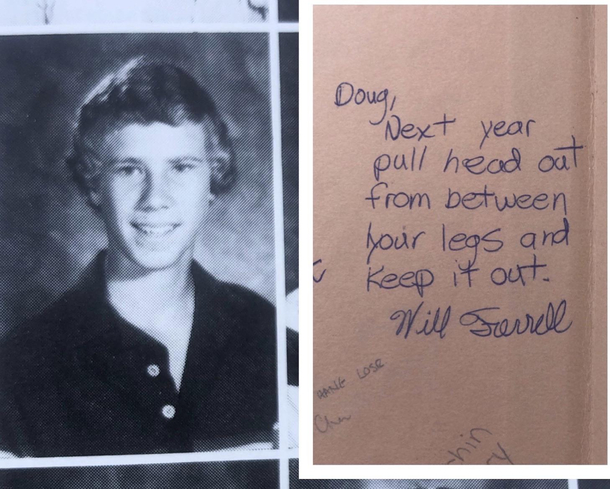 Doug,
Next year
pull head out
from between
your legs and
keep it out.
Will Ferrell
HANK LOSR